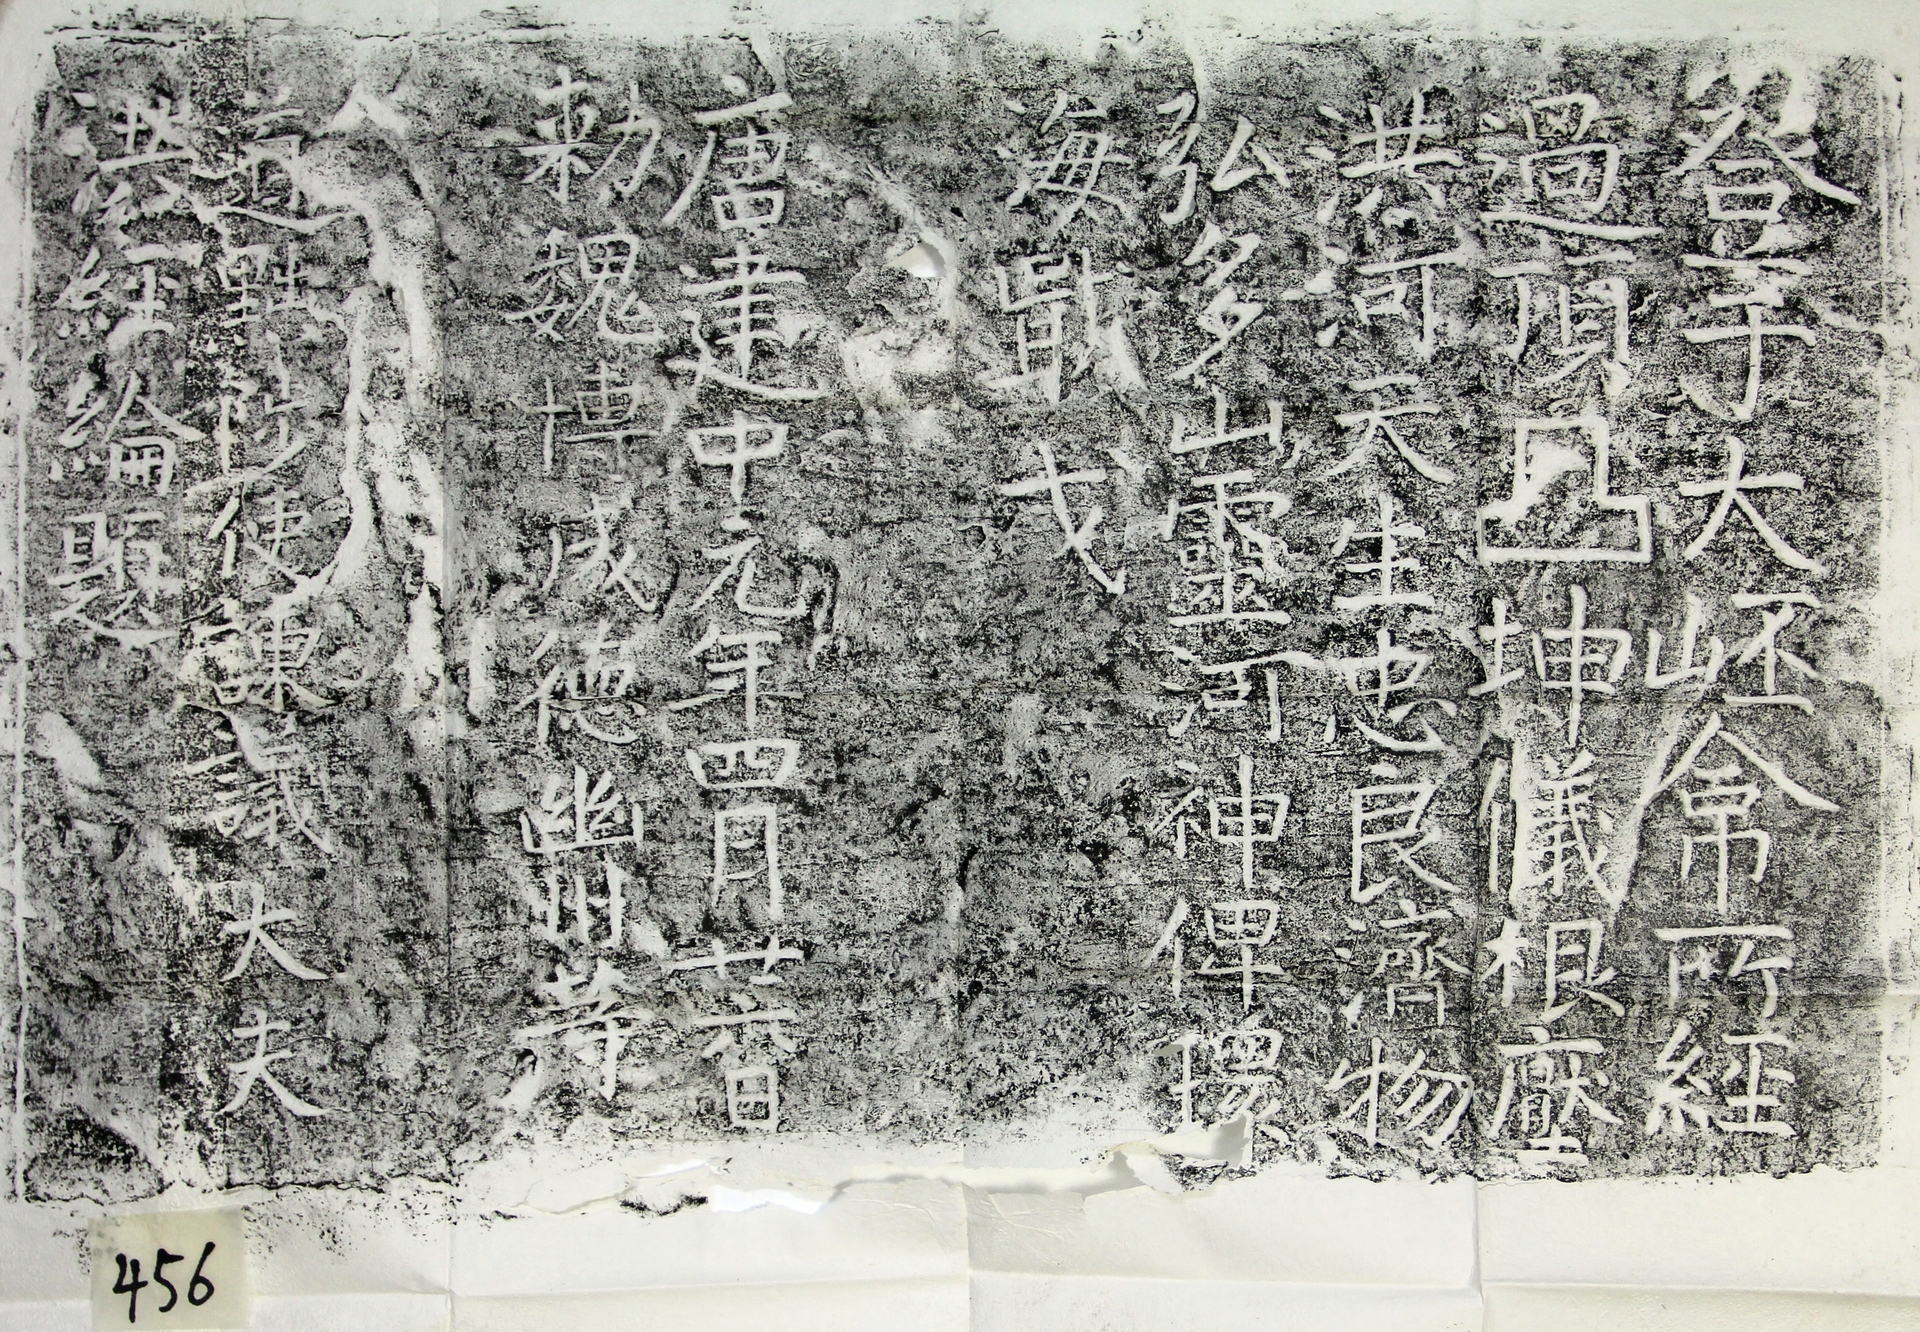 登于大岯所經
過頂凸坤儀根壓
洪河天生忠良濟物
弘多山靈河神俾環
海戢戈
唐建中元年四月廿日
勅魏博成德幽州等
道黜陟使諫議大夫
洪經綸題
456